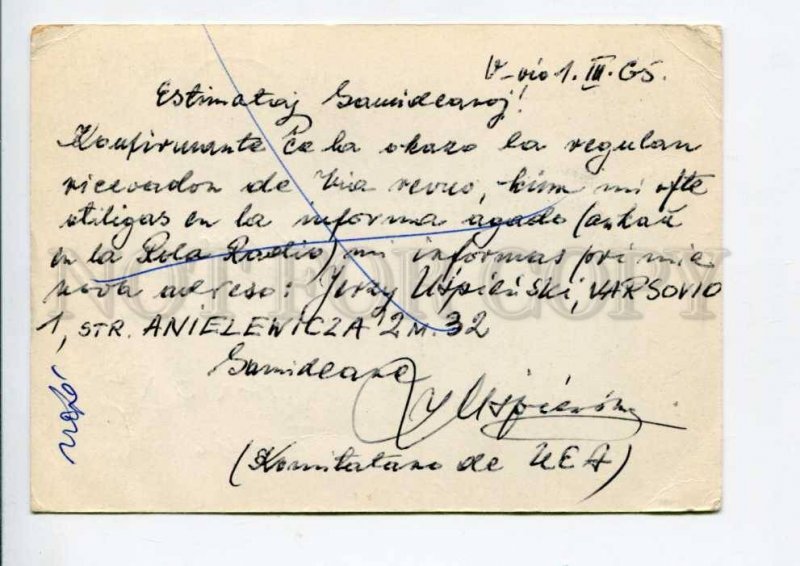 V-vio 1.III.65.
Estimataj Samideanoj!
Konfirmante ĉe la okazo la regulan
ricevadon de Via revuo, kiun mi ofte
utiligas en la informa agado (ankaŭ
en la Pola Radio) mi informas pri mia
nova adreso: Jerzy Uśpieński, VARSOVIO
1, STR. ANIELEWICZA 2 M. 32
Samideane
J Uśpieński
(Komitatano de UEA)
NOT FOR COPY